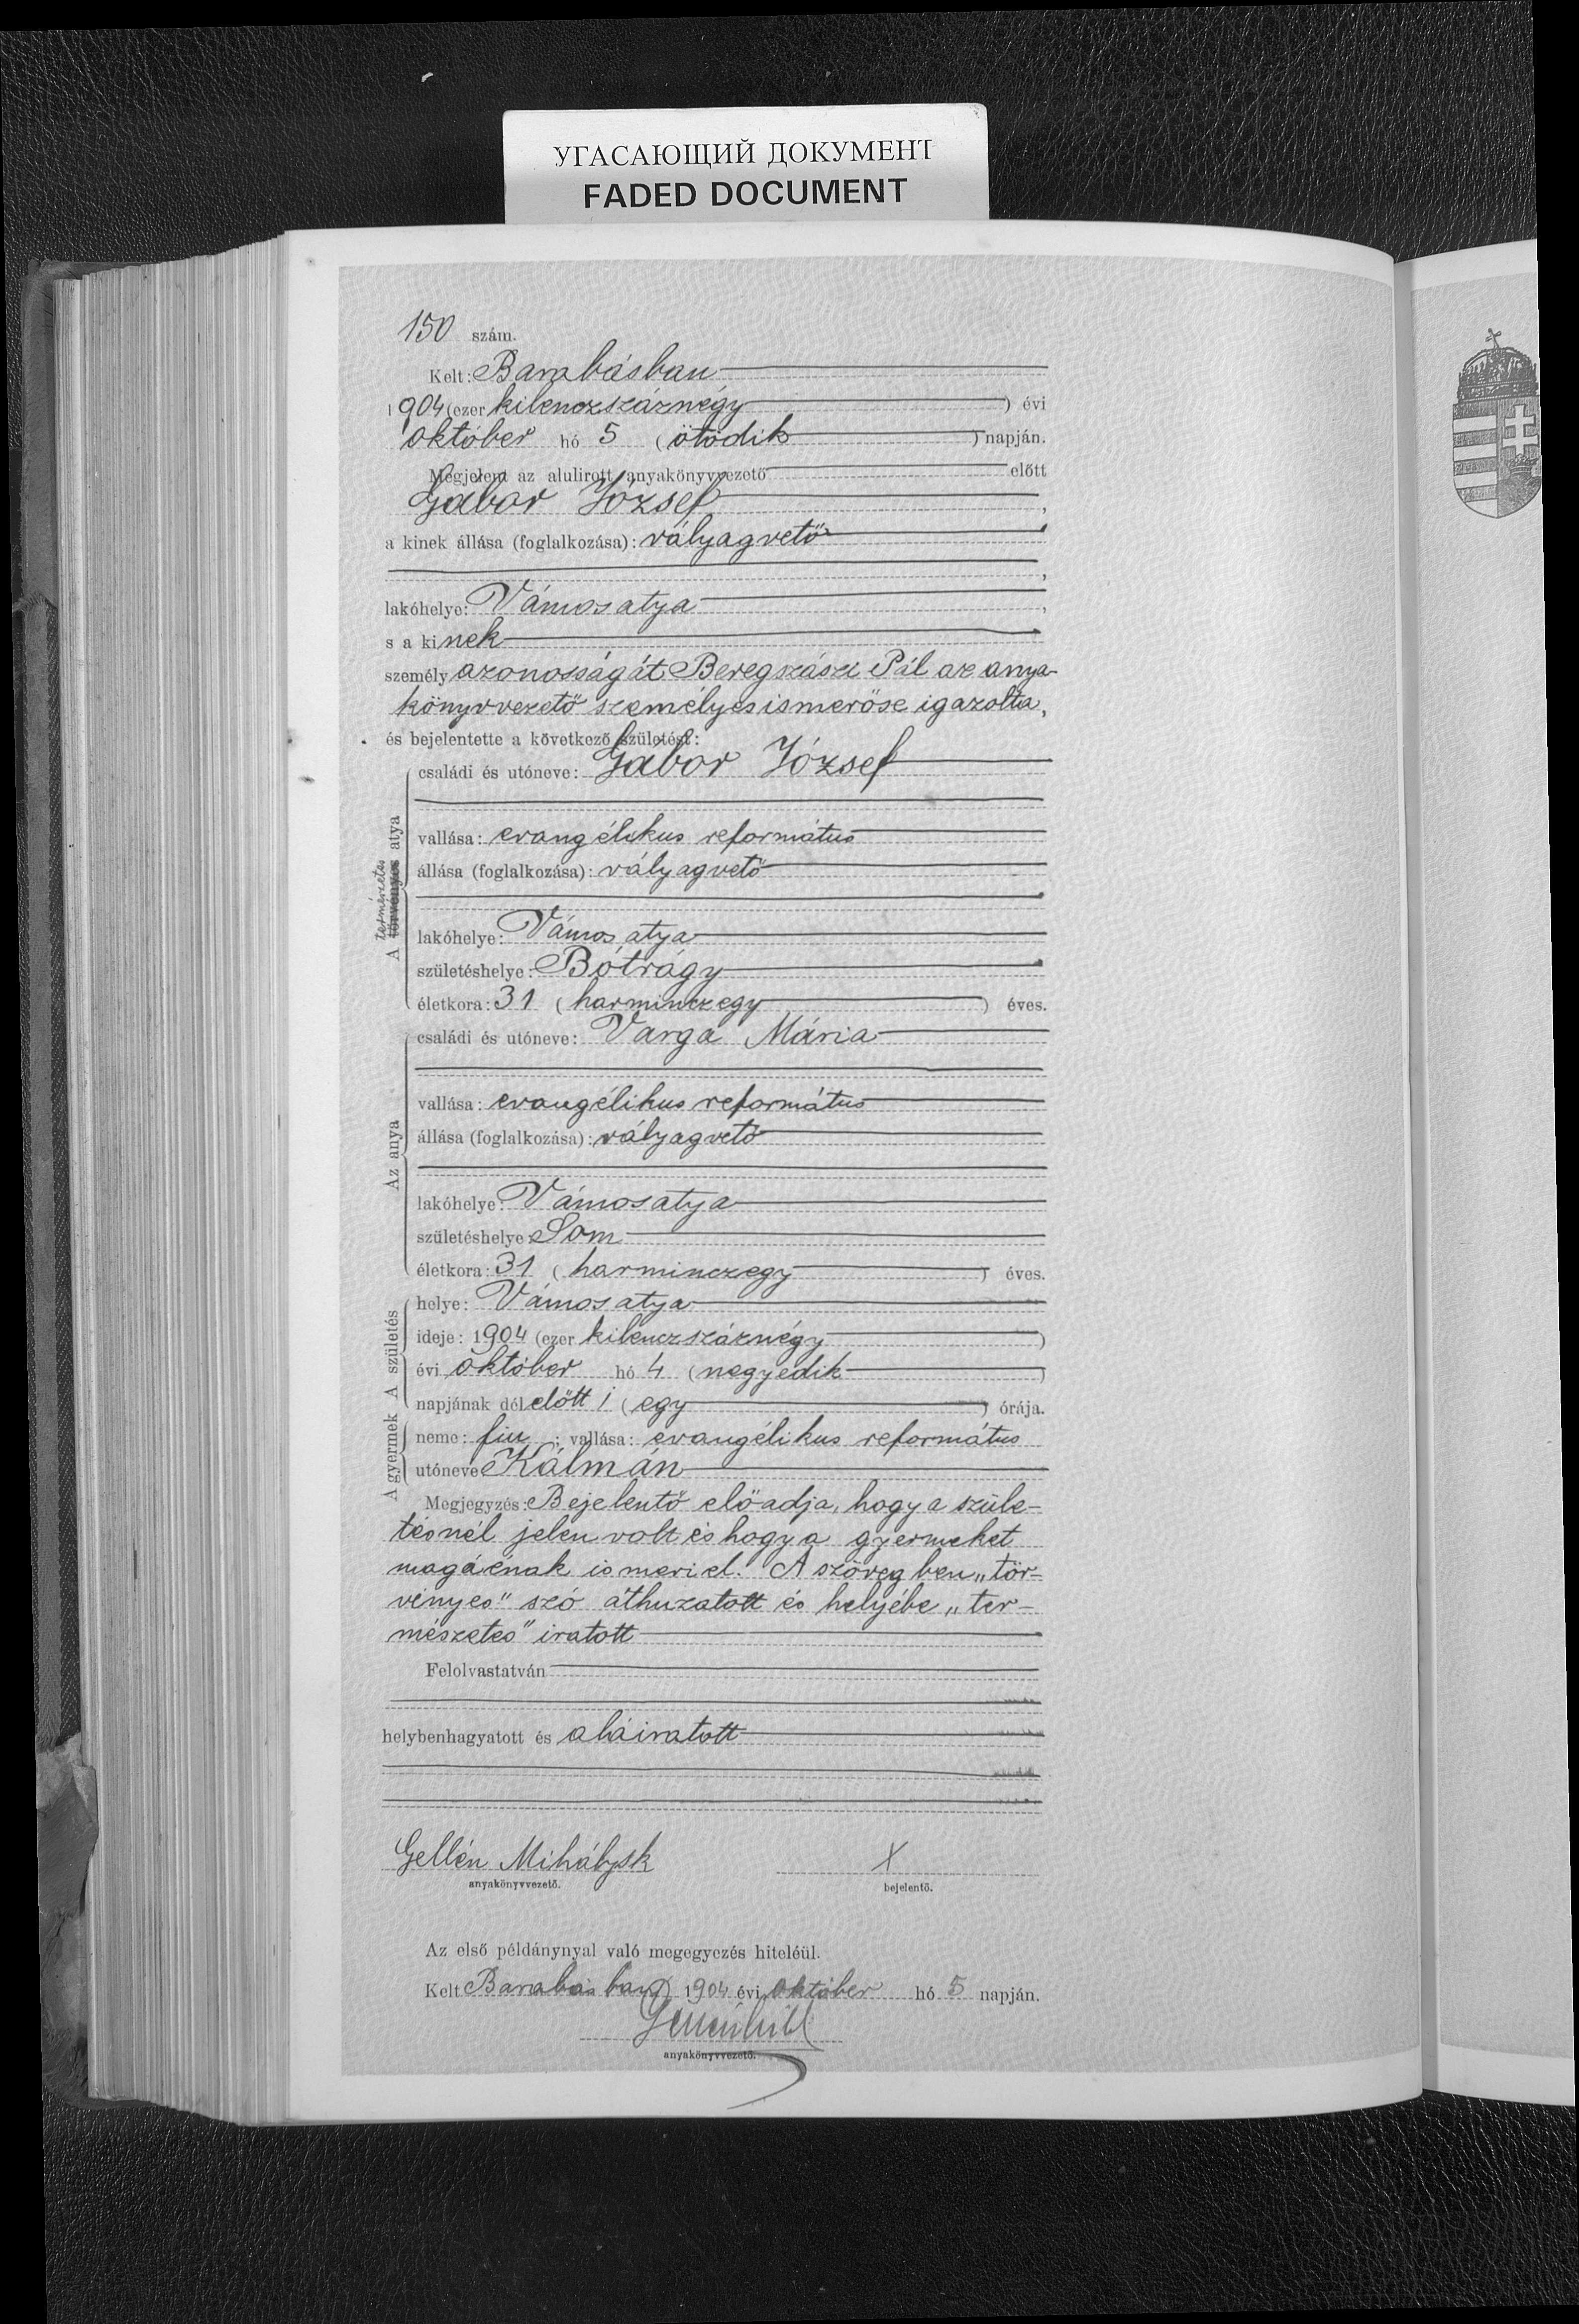 УГАСАЮЩИЙ ДОКУМЕНТ
FADED DOCUMENT
150 szám.
Kelt: Barabásban
1904 (ezer kilenczszáznégy) évi
október hó 5 (ötödik) napján.
Megjelent az alulirott anyakönyvvezető előtt
Gábor József,
a kinek állása (foglalkozása): vályagvető
lakóhelye: Vámosatya,
s a kinek
személyazonosságát Beregszászi Pál az anya-
könyvvezető személyes ismerőse igazolta,
és bejelentette a következő születést:
A törvényes atya
természetes
családi és utóneve: Gábor József
vallása: evangélikus református
állása (foglalkozása): vályagvető
lakóhelye: Vámosatya
születéshelye: Bótrágy
életkora: 31 (harminczegy) éves.
Az anya
családi és utóneve: Varga Mária
vallása: evangélikus református
állása (foglalkozása): vályagvető
lakóhelye: Vámosatya
születéshelye: Som
életkora: 31 (harminczegy) éves.
A születés
helye: Vámosatya
ideje: 1904 (ezer kilenczszáznégy)
évi október hó 4 (negyedik)
napjának délelőtt 1 (egy) órája.
A gyermek
neme: fiu; vallása: evangélikus református
utóneve: Kálmán
Megjegyzés: Bejelentő előadja, hogy a szüle-
tésnél jelen volt és hogy a gyermeket
magáénak ismeri el. A szövegben „tör-
vényes" szó áthuzatott és helyébe „ter-
mészetes" iratott
Felolvastatván
helybenhagyatott és aláiratott
Gellén Mihály sk X
anyakönyvvezető. bejelentő.
Az első példánynyal való megegyezés hiteléül.
Kelt Barabásban, 1904 évi október hó 5 napján.
anyakönyvvezető.